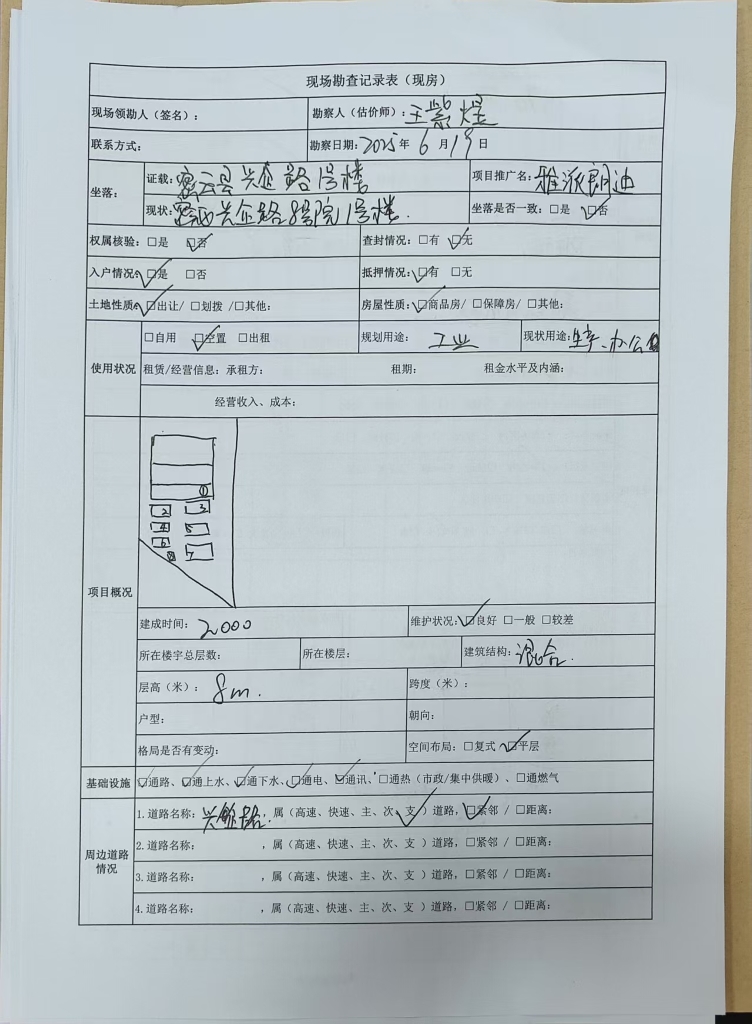 现场勘查记录表（现房）
现场领勘人（签名）： 勘察人（估价师）：王紫煜
联系方式： 勘察日期：2025年6月19日
坐落： 证载：密云县兴企路1号楼 项目推广名：雅派朗迪
现状：密云兴企路8号院1号楼. 坐落是否一致：□是 ☑否
权属核验：□是 ☑否 查封情况：□有 ☑无
入户情况：☑是 □否 抵押情况：☑有 □无
土地性质：☑出让/ □划拨 /□其他： 房屋性质：☑商品房/ □保障房/ □其他：
使用状况 □自用 ☑空置 □出租 规划用途：工业 现状用途：生产、办公
租赁/经营信息：承租方： 租期： 租金水平及内涵：
经营收入、成本：
项目概况
①
2 3
4 5
6
7
建成时间：2000 维护状况：☑良好 □一般 □较差
所在楼宇总层数： 所在楼层： 建筑结构：混合.
层高（米）：8m. 跨度（米）：
户型： 朝向：
格局是否有变动： 空间布局：□复式 ☑平层
基础设施 ☑通路、☑通上水、☑通下水、☑通电、☑通讯、□通热（市政/集中供暖）、□通燃气
周边道路情况 1.道路名称：兴企路，属（高速、快速、主、次、支✓）道路，☑紧邻 / □距离：
2.道路名称： ，属（高速、快速、主、次、支 ）道路，□紧邻 / □距离：
3.道路名称： ，属（高速、快速、主、次、支 ）道路，□紧邻 / □距离：
4.道路名称： ，属（高速、快速、主、次、支 ）道路，□紧邻 / □距离：